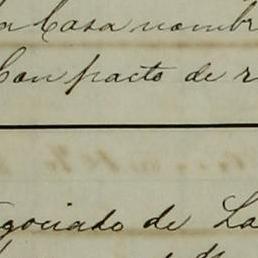 a Casa nombr
Con pacto de r
gociado de La